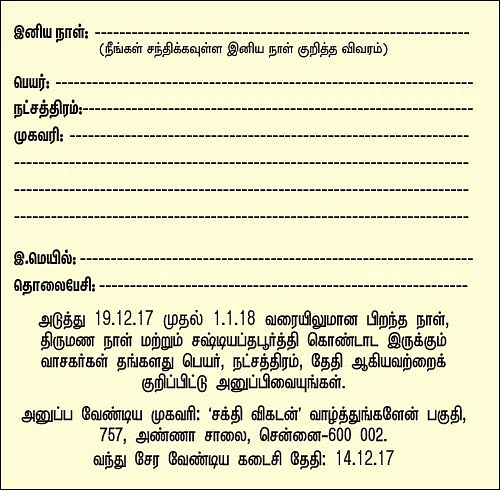 இனிய நாள்: ----------------------------------------------------------------
(நீங்கள் சந்திக்கவுள்ள இனிய நாள் குறித்த விவரம்)
பெயர்: ------------------------------------------------------------------------
நட்சத்திரம்:-------------------------------------------------------------------
முகவரி: ---------------------------------------------------------------------
------------------------------------------------------------------------------
------------------------------------------------------------------------------
------------------------------------------------------------------------------
இ.மெயில்: -------------------------------------------------------------------
தொலைபேசி: ---------------------------------------------------------------
அடுத்து 19.12.17 முதல் 1.1.18 வரையிலுமான பிறந்த நாள்,
திருமண நாள் மற்றும் சஷ்டியப்தபூர்த்தி கொண்டாட இருக்கும்
வாசகர்கள் தங்களது பெயர், நட்சத்திரம், தேதி ஆகியவற்றைக்
குறிப்பிட்டு அனுப்பிவையுங்கள்.
அனுப்ப வேண்டிய முகவரி: ‘சக்தி விகடன்’ வாழ்த்துங்களேன் பகுதி,
757, அண்ணா சாலை, சென்னை-600 002.
வந்து சேர வேண்டிய கடைசி தேதி: 14.12.17